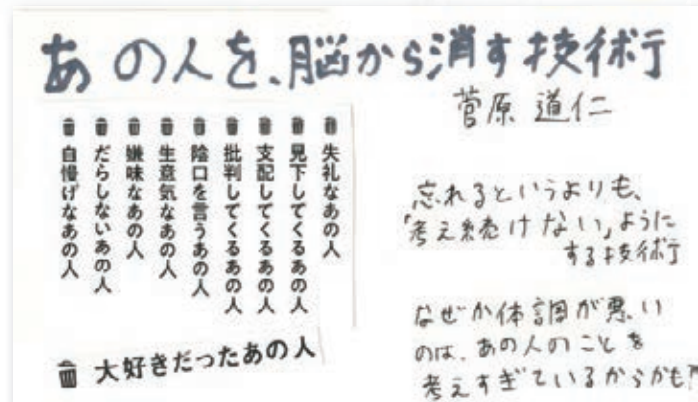 あの人を、脳から消す技術
菅原 道仁
失礼なあの人
見下してくるあの人
支配してくるあの人
批判してくるあの人
陰口を言うあの人
生意気なあの人
嫌味なあの人
だらしないあの人
自慢げなあの人
大好きだったあの人
忘れるというよりも、
「考え続けない」ように
する技術
なぜか体調が悪い
のは、あの人のことを
考えすぎているからかも?!